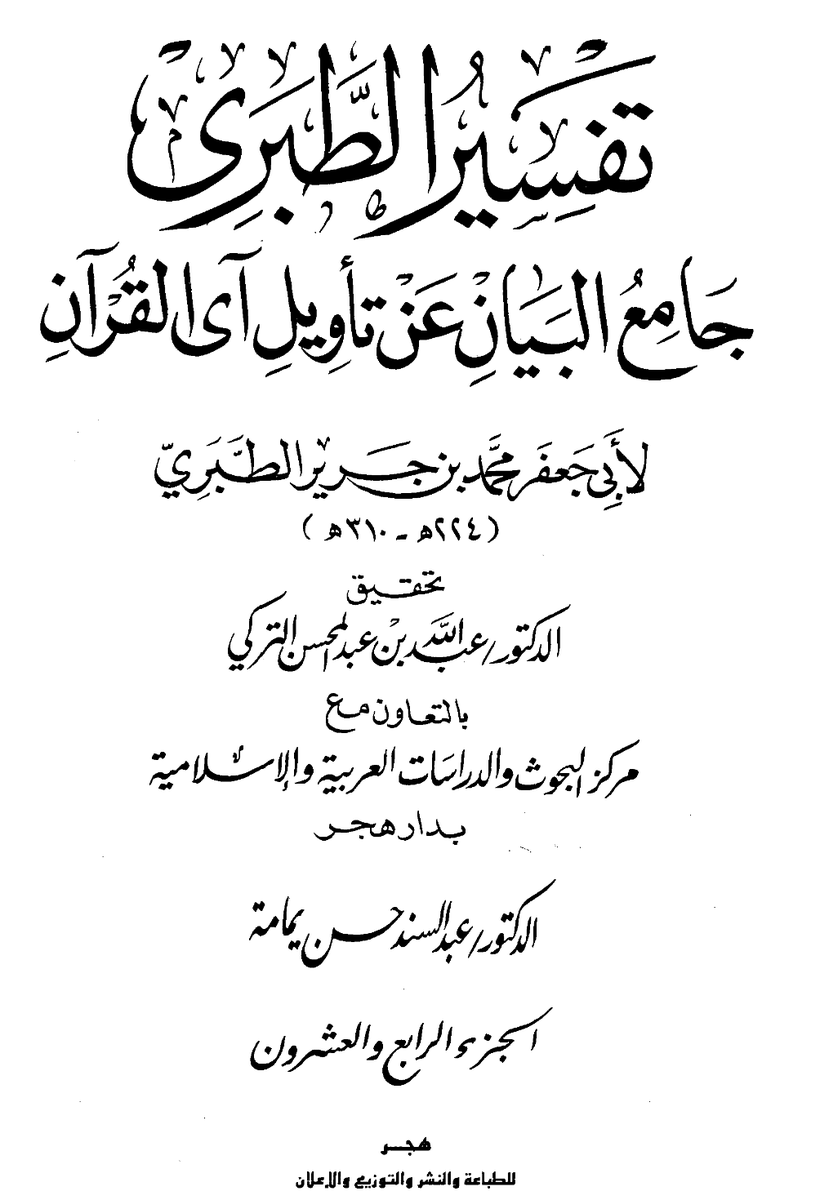 تَفْسِيرُ الطَّبَرِي
جَامِعُ البَيَانِ عَنْ تَأوِيلِ آي القُرْآنِ
لأَبِي جَعفَر مُحَمَّد بن جَرير الطَّبَرِيّ
(٢٢٤هـ - ٣١٠هـ)
تحقيق
الدكتور/ عبد اللَّه بن عبد المحسن التركي
بالتعاون مع
مركز البحوث والدراسات العربية والإسلامية
بدار هجر
الدكتور/ عبد السند حسن يمامة
الجزء الرابع والعشرون
هجر
للطباعة والنشر والتوزيع والإعلان